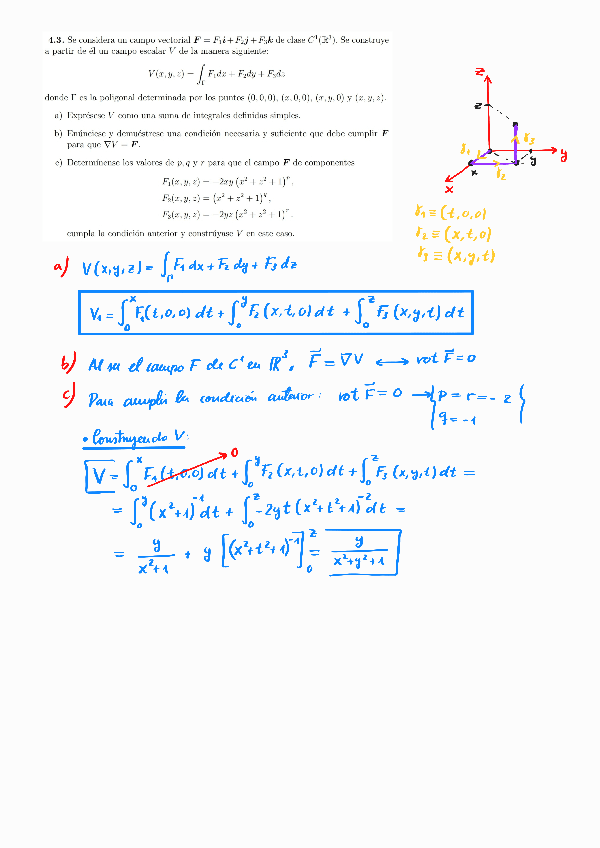 4.3. Se considera un campo vectorial F = F₁i+F₂j+F₃k de clase C¹(ℝ³). Se construye
a partir de él un campo escalar V de la manera siguiente:
V(x, y, z) = ∫_Γ F₁dx + F₂dy + F₃dz
donde Γ es la poligonal determinada por los puntos (0, 0, 0), (x, 0, 0), (x, y, 0) y (x, y, z).
a) Exprésese V como una suma de integrales definidas simples.
b) Enúnciese y demuéstrese una condición necesaria y suficiente que debe cumplir F
para que ∇V = F.
c) Determínense los valores de p, q y r para que el campo F de componentes
F₁(x, y, z) = −2xy (x² + z² + 1)^p,
F₂(x, y, z) = (x² + z² + 1)^q,
F₃(x, y, z) = −2yz (x² + z² + 1)^r,
cumpla la condición anterior y constrúyase V en este caso.
z
z
γ3
γ1
y
y
x
γ2
x
γ1 ≡ (t,0,0)
γ2 ≡ (x,t,0)
γ3 ≡ (x,y,t)
a) V(x,y,z) = ∫_Γ F1 dx + F2 dy + F3 dz
V1 = ∫_0^x F1(t,0,0) dt + ∫_0^y F2(x,t,0) dt + ∫_0^z F3(x,y,t) dt
b) Al ser el campo F de C¹ en ℝ³, F⃗ = ∇V ⟷ rot F⃗ = 0
c) Para cumplir la condición anterior: rot F⃗ = 0 → { p = r = - 2
q = -1 }
• Construyendo V:
V = ∫_0^x F1(t,0,0) dt + ∫_0^y F2(x,t,0) dt + ∫_0^z F3(x,y,t) dt =
0
= ∫_0^y (x²+1)^-1 dt + ∫_0^z -2yt (x²+t²+1)^-2 dt =
= y/(x²+1) + y [(x²+t²+1)^-1]_0^z = y/(x²+y²+1)